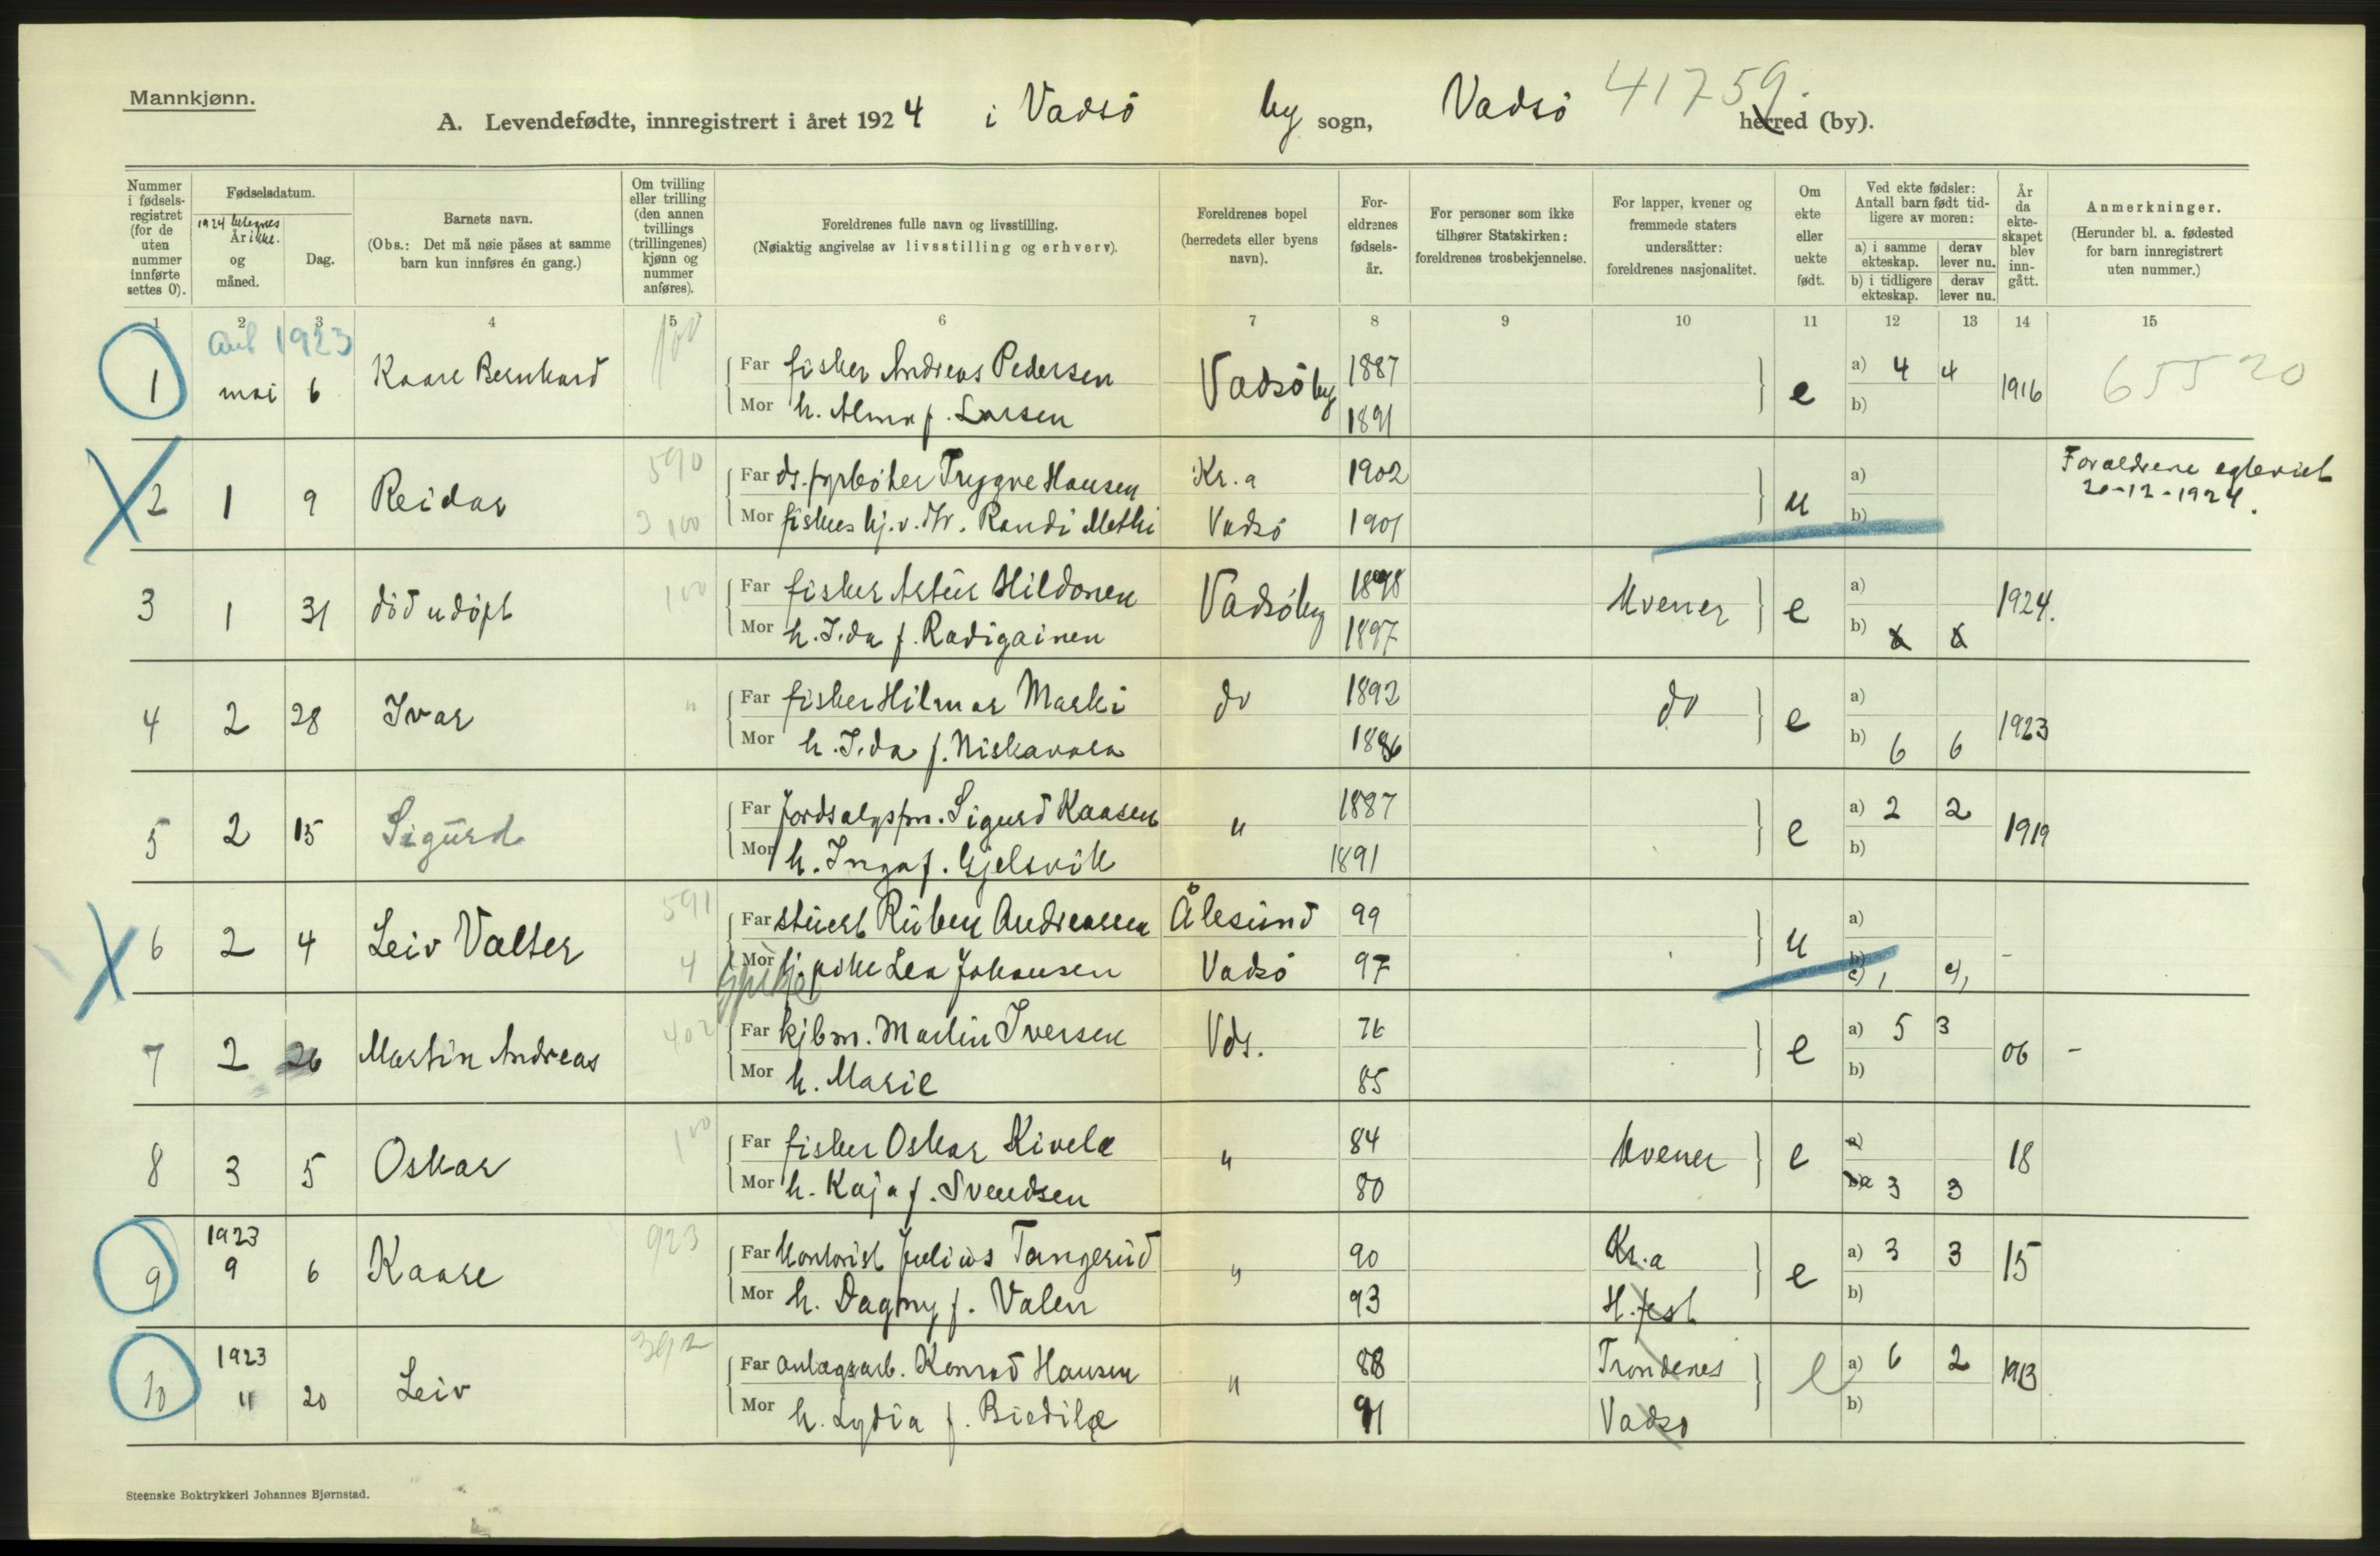 Mannkjønn.
A. Levendefødte, innregistrert i året 1924 i Vadsö by sogn, Vadsö herred (by).
41759.
Nummer i fødselsregistret (for de uten nummer innførte settes 0).
Fødselsdatum.
1924 betegnes ikke.
År og måned.
Dag.
Barnets navn.
(Obs.: Det må nøie påses at samme barn kun innføres én gang.)
Om tvilling eller trilling (den annen tvillings (trillingenes) kjønn og nummer anføres).
Foreldrenes fulle navn og livsstilling.
(Nøiaktig angivelse av livsstilling og erhverv).
Foreldrenes bopel (herredets eller byens navn).
Foreldrenes fødselsår.
For personer som ikke tilhører Statskirken: foreldrenes trosbekjennelse.
For lapper, kvener og fremmede staters undersåtter: foreldrenes nasjonalitet.
Om ekte eller uekte født.
Ved ekte fødsler: Antall barn født tidligere av moren:
a) i samme ekteskap. derav lever nu.
b) i tidligere ekteskap. derav lever nu.
År da ekteskapet blev inngått.
Anmerkninger.
(Herunder bl. a. fødested for barn innregistrert uten nummer.)
1 2 3 4 5 6 7 8 9 10 11 12 13 14 15
1923
1 mai 6 Kaare Bernhard 100 Far fisker Andreas Pedersen Vadsö by 1887 e a) 4 4 1916 65520
Mor h. Alma f. Larsen 1891 b)
2 1 9 Reidar 590 Far ds. fyrböter Trygve Hansen Kr.a 1902 u a) Foraeldrene egteviet
20-12-1924.
3 100 Mor fiskes hj. v. Randi Methi Vadsö 1901 b)
3 1 31 död udöpt 100 Far fisker Artur Hildonen Vadsö by 1898 Kvener e a) 1924.
Mor h. Ida f. Radigainen 1897 b)
4 2 28 Ivar " Far fisker Hilmar Marki do 1892 do e a) 1923
Mor h. Ida f. Niskavara 1886 b) 6 6
5 2 15 Sigurd Far Jordsalgsfm. Sigurd Kaasen " 1887 e a) 2 2 1919
Mor h. Inga f. Gjelsvik 1891 b)
6 2 4 Leiv Valter 591 Far stuert Ruben Andreassen Ålesund 99 u a)
4 Mor pike Lea Johansen Vadsö 97 b) -
c) 1
7 2 26 Martin Andreas 402 Far kjbm. Martin Iversen Vds. 76 e a) 5 3 06 -
Mor h. Marie 85 b)
8 3 5 Oskar 100 Far fisker Oskar Kivelæ " 84 Kvener e a) 18
Mor h. Kaja f. Svendsen 80 a 3 3
9 1923 9 6 Kaare 923 Far Kontorist Julius Tangerud " 90 Kr.a e a) 3 3 15
Mor h. Dagny f. Valen 93 H.fest b)
10 1923 11 20 Leiv 392 Far anlægsarb. Konrad Hansen " 88 Trondenes e a) 6 2 1913
Mor h. Lydia f. Biedilæ 91 Vadsø b)
Steenske Boktrykkeri Johannes Bjørnstad.